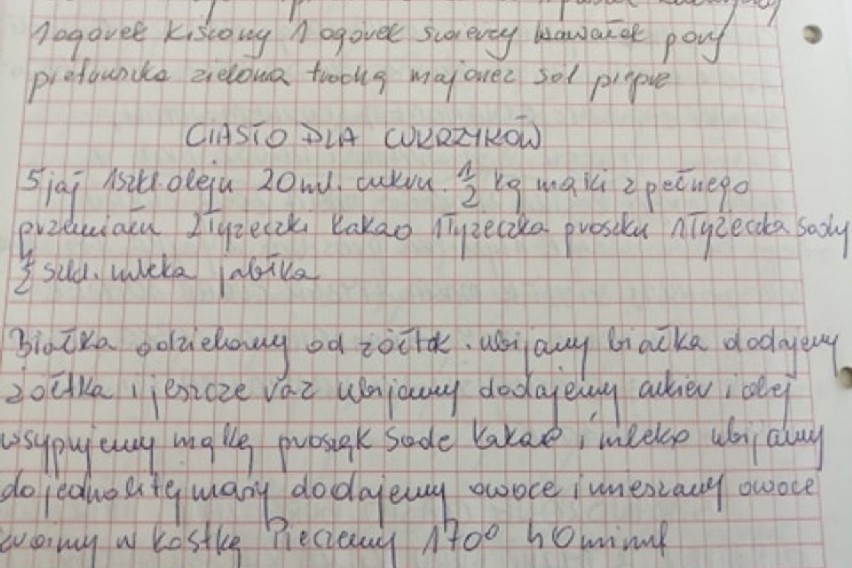 1 ogórek kiszony 1 ogórek świeży kawałek pory
pietruszka zielona trochę majonez sól pieprz
CIASTO DLA CUKRZYKÓW
5 jaj 1 szkl. oleju 20 ml. cukru. 1/2 kg mąki z pełnego
przemiału 2 łyżeczki kakao 1 łyżeczka proszku 1 łyżeczka sody
1/2 szkl. mleka jabłka
Białka odzielamy od żółtek. ubijamy białka dodajemy
żółtka i jeszcze raz ubijamy dodajemy cukier i olej
wsypujemy mąkę proszek sode kakao i mleko ubijamy
do jednolitej masy dodajemy owoce i mieszamy owoce
kroimy w kostkę Pieczemy 170° 40 minut